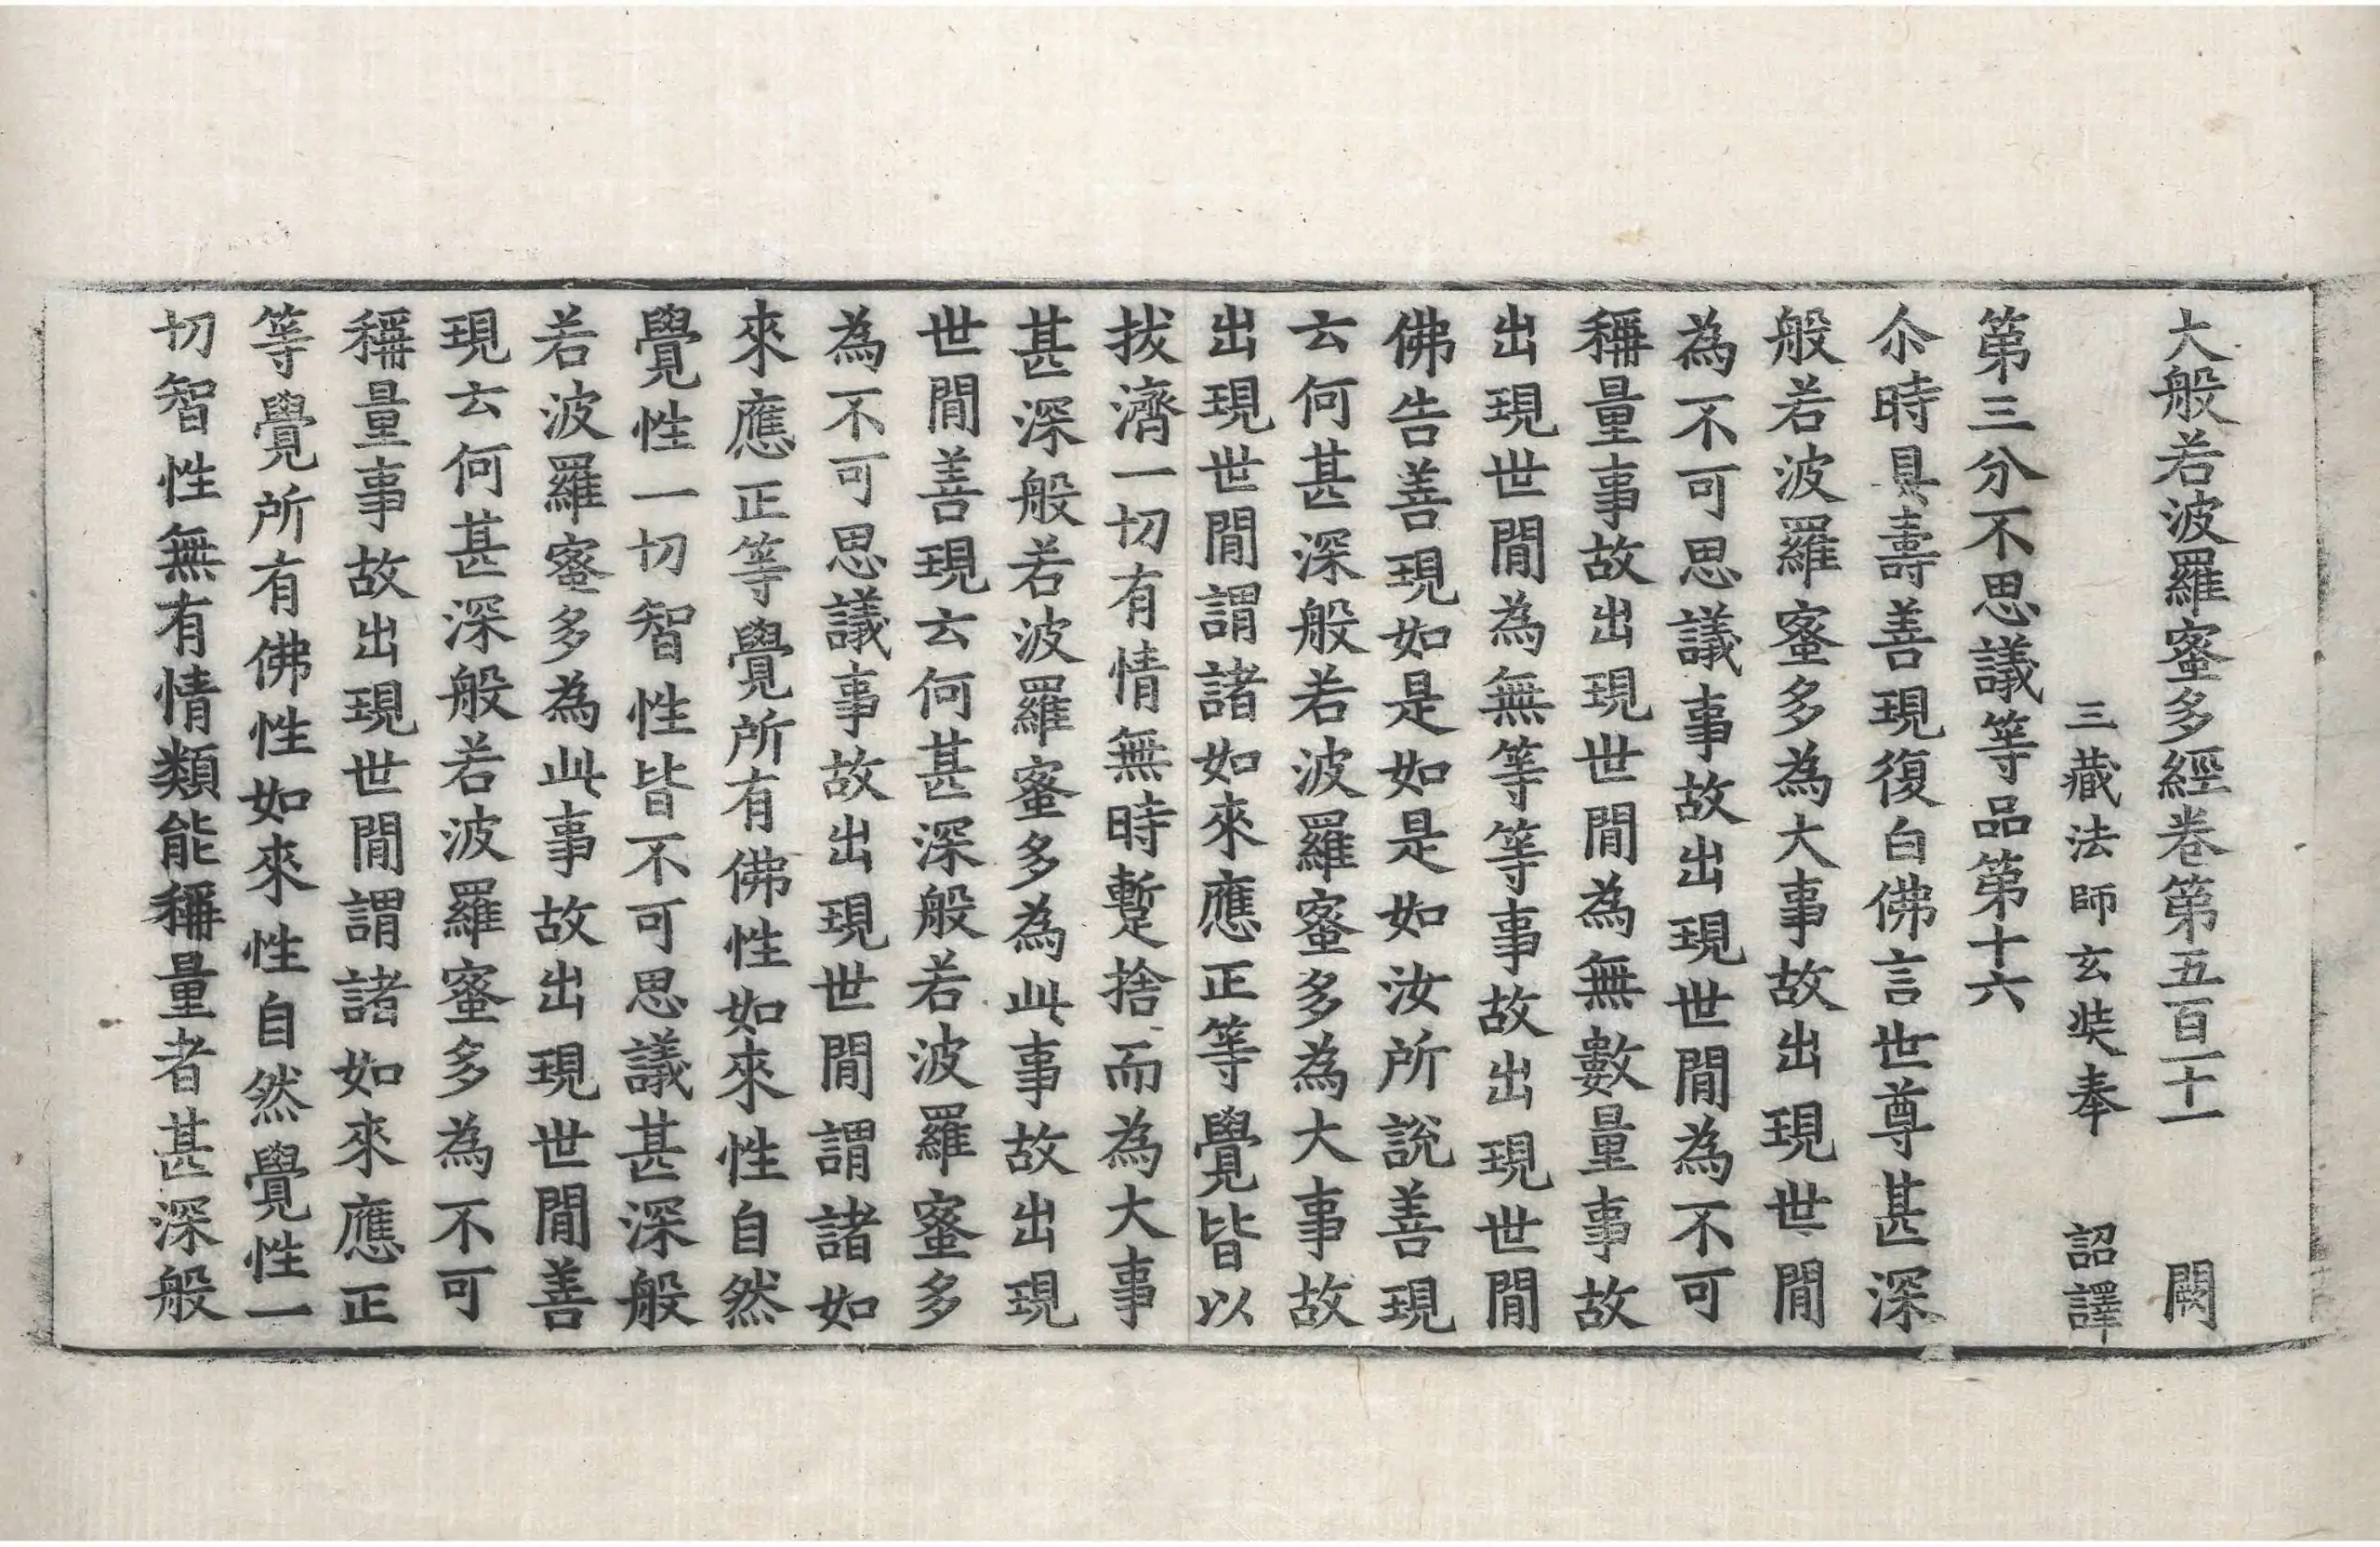 大般若波羅蜜多經卷第五百一十一 闕
三藏法師玄奘奉 詔譯
第三分不思議等品第十六
尒時具壽善現復白佛言世尊甚深
般若波羅蜜多為大事故出現世閒
為不可思議事故出現世閒為不可
稱量事故出現世閒為無數量事故
出現世閒為無等等事故出現世閒
佛告善現如是如是如汝所說善現
云何甚深般若波羅蜜多為大事故
出現世閒謂諸如來應正等覺皆以
拔濟一切有情無時蹔捨而為大事
甚深般若波羅蜜多為此事故出現
世閒善現云何甚深般若波羅蜜多
為不可思議事故出現世閒謂諸如
來應正等覺所有佛性如來性自然
覺性一切智性皆不可思議甚深般
若波羅蜜多為此事故出現世閒善
現云何甚深般若波羅蜜多為不可
稱量事故出現世閒謂諸如來應正
等覺所有佛性如來性自然覺性一
切智性無有情類能稱量者甚深般